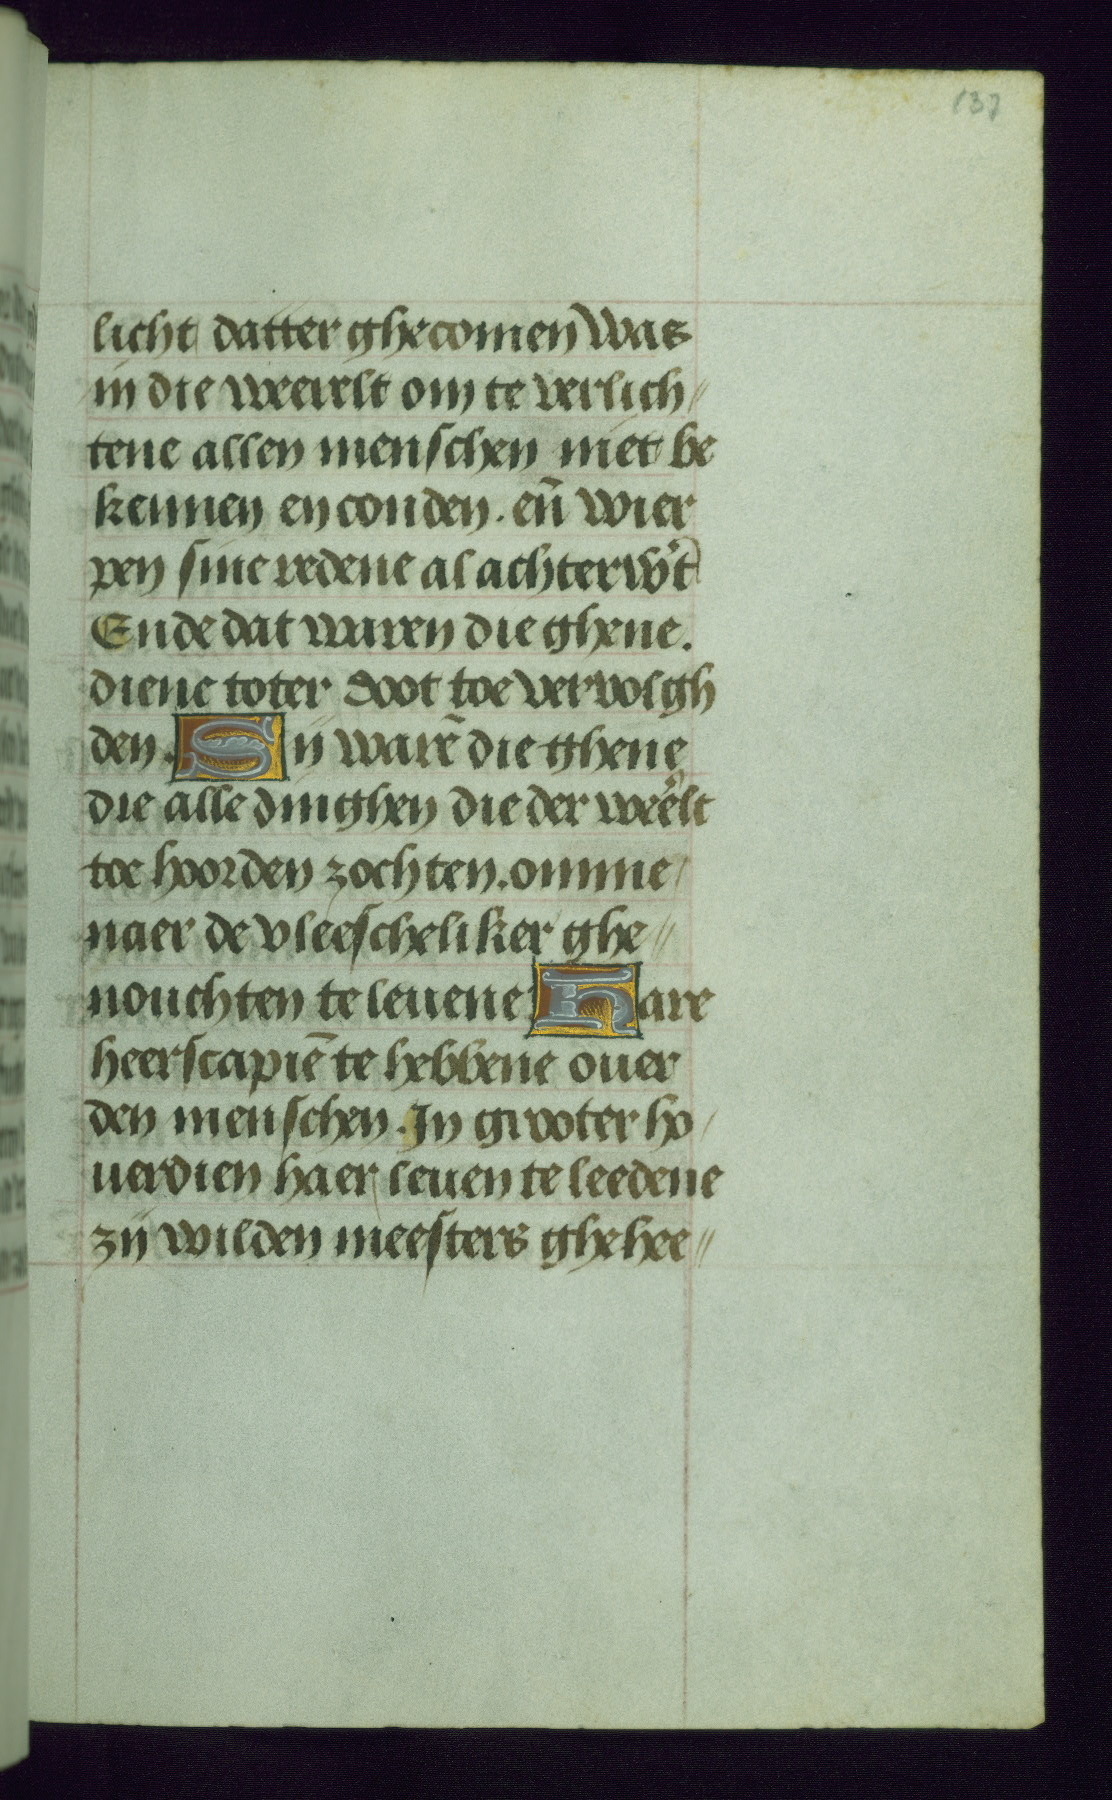 137
licht datter ghecomen was
in die weerelt om te verlich//
tene allen menschen niet be
kennen en conden. en̄ wier
pen sine redene al achterwͬt
Ende dat waren die ghene.
diene toter doot toe vervolgh
den. Sij warē die ghene
die alle dinghen die der weͬelt
toe hoorden zochten. omme/
naer de vleescheliker ghe//
nouchten te leuene: Hare
heerscapiē te hebbene ouer
den menschen. In grooter ho/
uerdien haer leuen te leedene
zij wilden meesters ghehee//